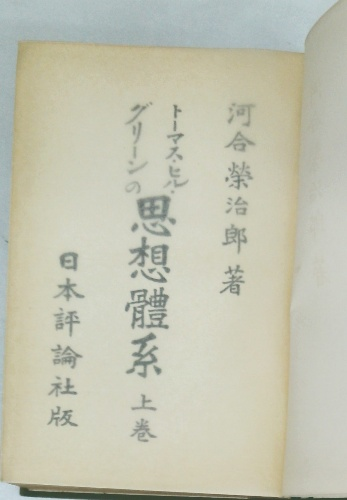 河合榮治郎著
トーマス・ヒル・
グリーンの
思想體系 上巻
日本評論社版